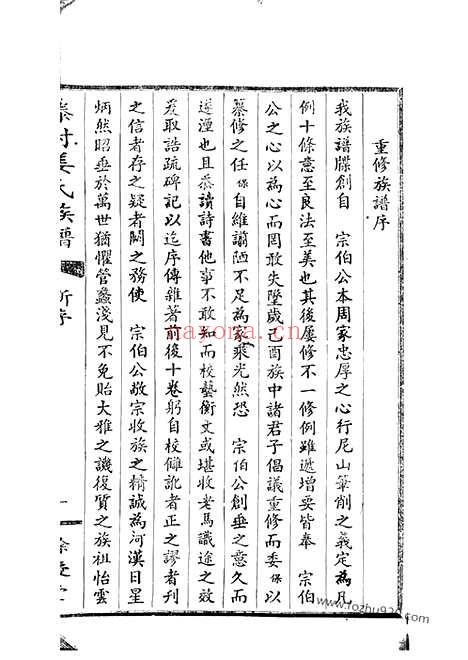 重修族譜序
我族譜牒創自　宗伯公本周家忠厚之心行尼山筆削之義定為凡
例十條意至良法至美也其後屢修不一修例雖遞增要皆奉　宗伯
公之心以為心而罔敢失墜歲己酉族中諸君子倡議重修而委保以
纂修之任保自維謭陋不足為家乘光然恐　宗伯公創垂之意久而
遂湮也且恭讀詩書他事不敢知而校藝衡文或堪收老馬識途之效
爰取誥疏碑記以迄序傳雜著前後十卷躬自校讎訛者正之謬者刊
之信者存之疑者闕之務使　宗伯公敬宗收族之精誠為河漢日星
炳然昭垂於萬世猶懼管蠡淺見不免貽大雅之譏復質之族祖怡雲
村姜氏族譜
新序
一
nayona.cn
www.fozhu920.com